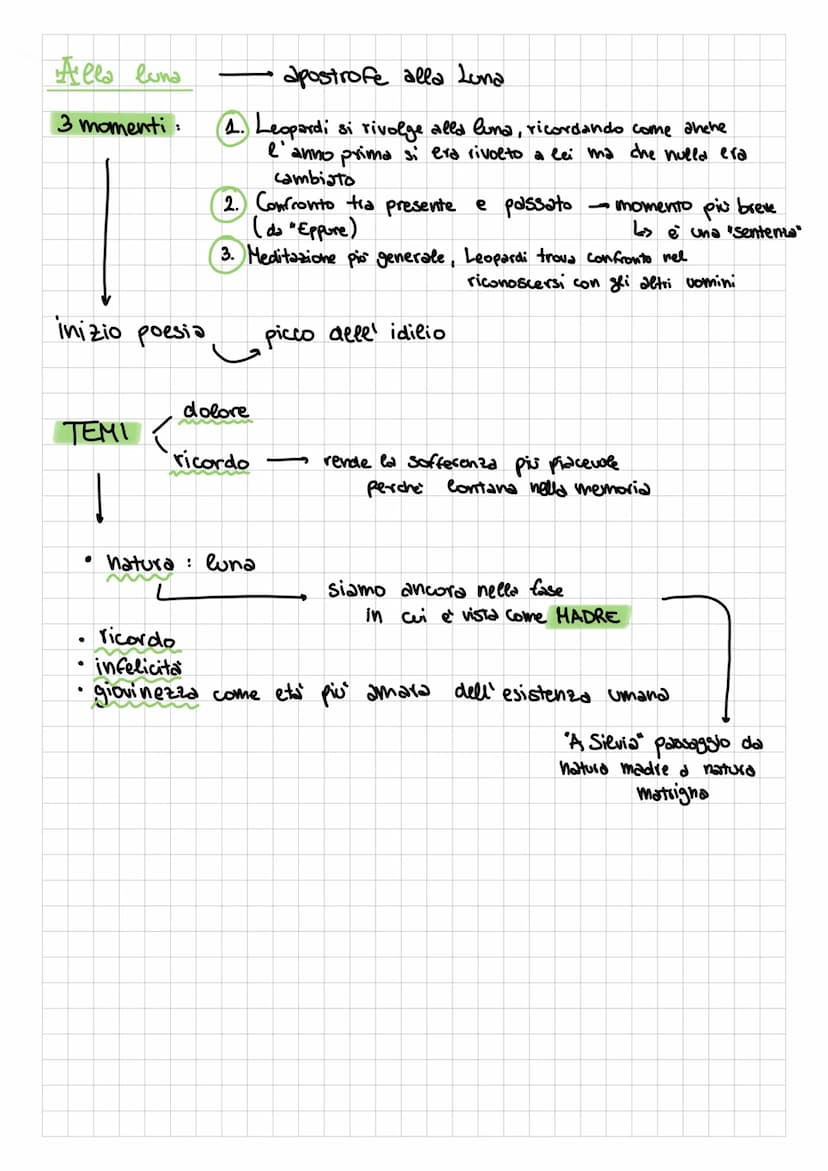 Alla luna → apostrofe alla Luna
3 momenti: 1. Leopardi si rivolge alla luna, ricordando come anche
l'anno prima si era rivolto a lei ma che nulla era
cambiato
2. Confronto tra presente e passato → momento più breve
(da "Eppure) ↳ è una "sentenza"
3. Meditazione più generale, Leopardi trova confronto nel
riconoscersi con gli altri uomini
inizio poesia picco dell' idilio
dolore
TEMI
ricordo → rende la sofferenza più piacevole
perché lontana nella memoria
• natura : luna
siamo ancora nella fase
in cui è vista come MADRE
• ricordo
• infelicità
• giovinezza come età più amara dell'esistenza umana
"A Silvia" passaggio da
natura madre a natura
matrigna